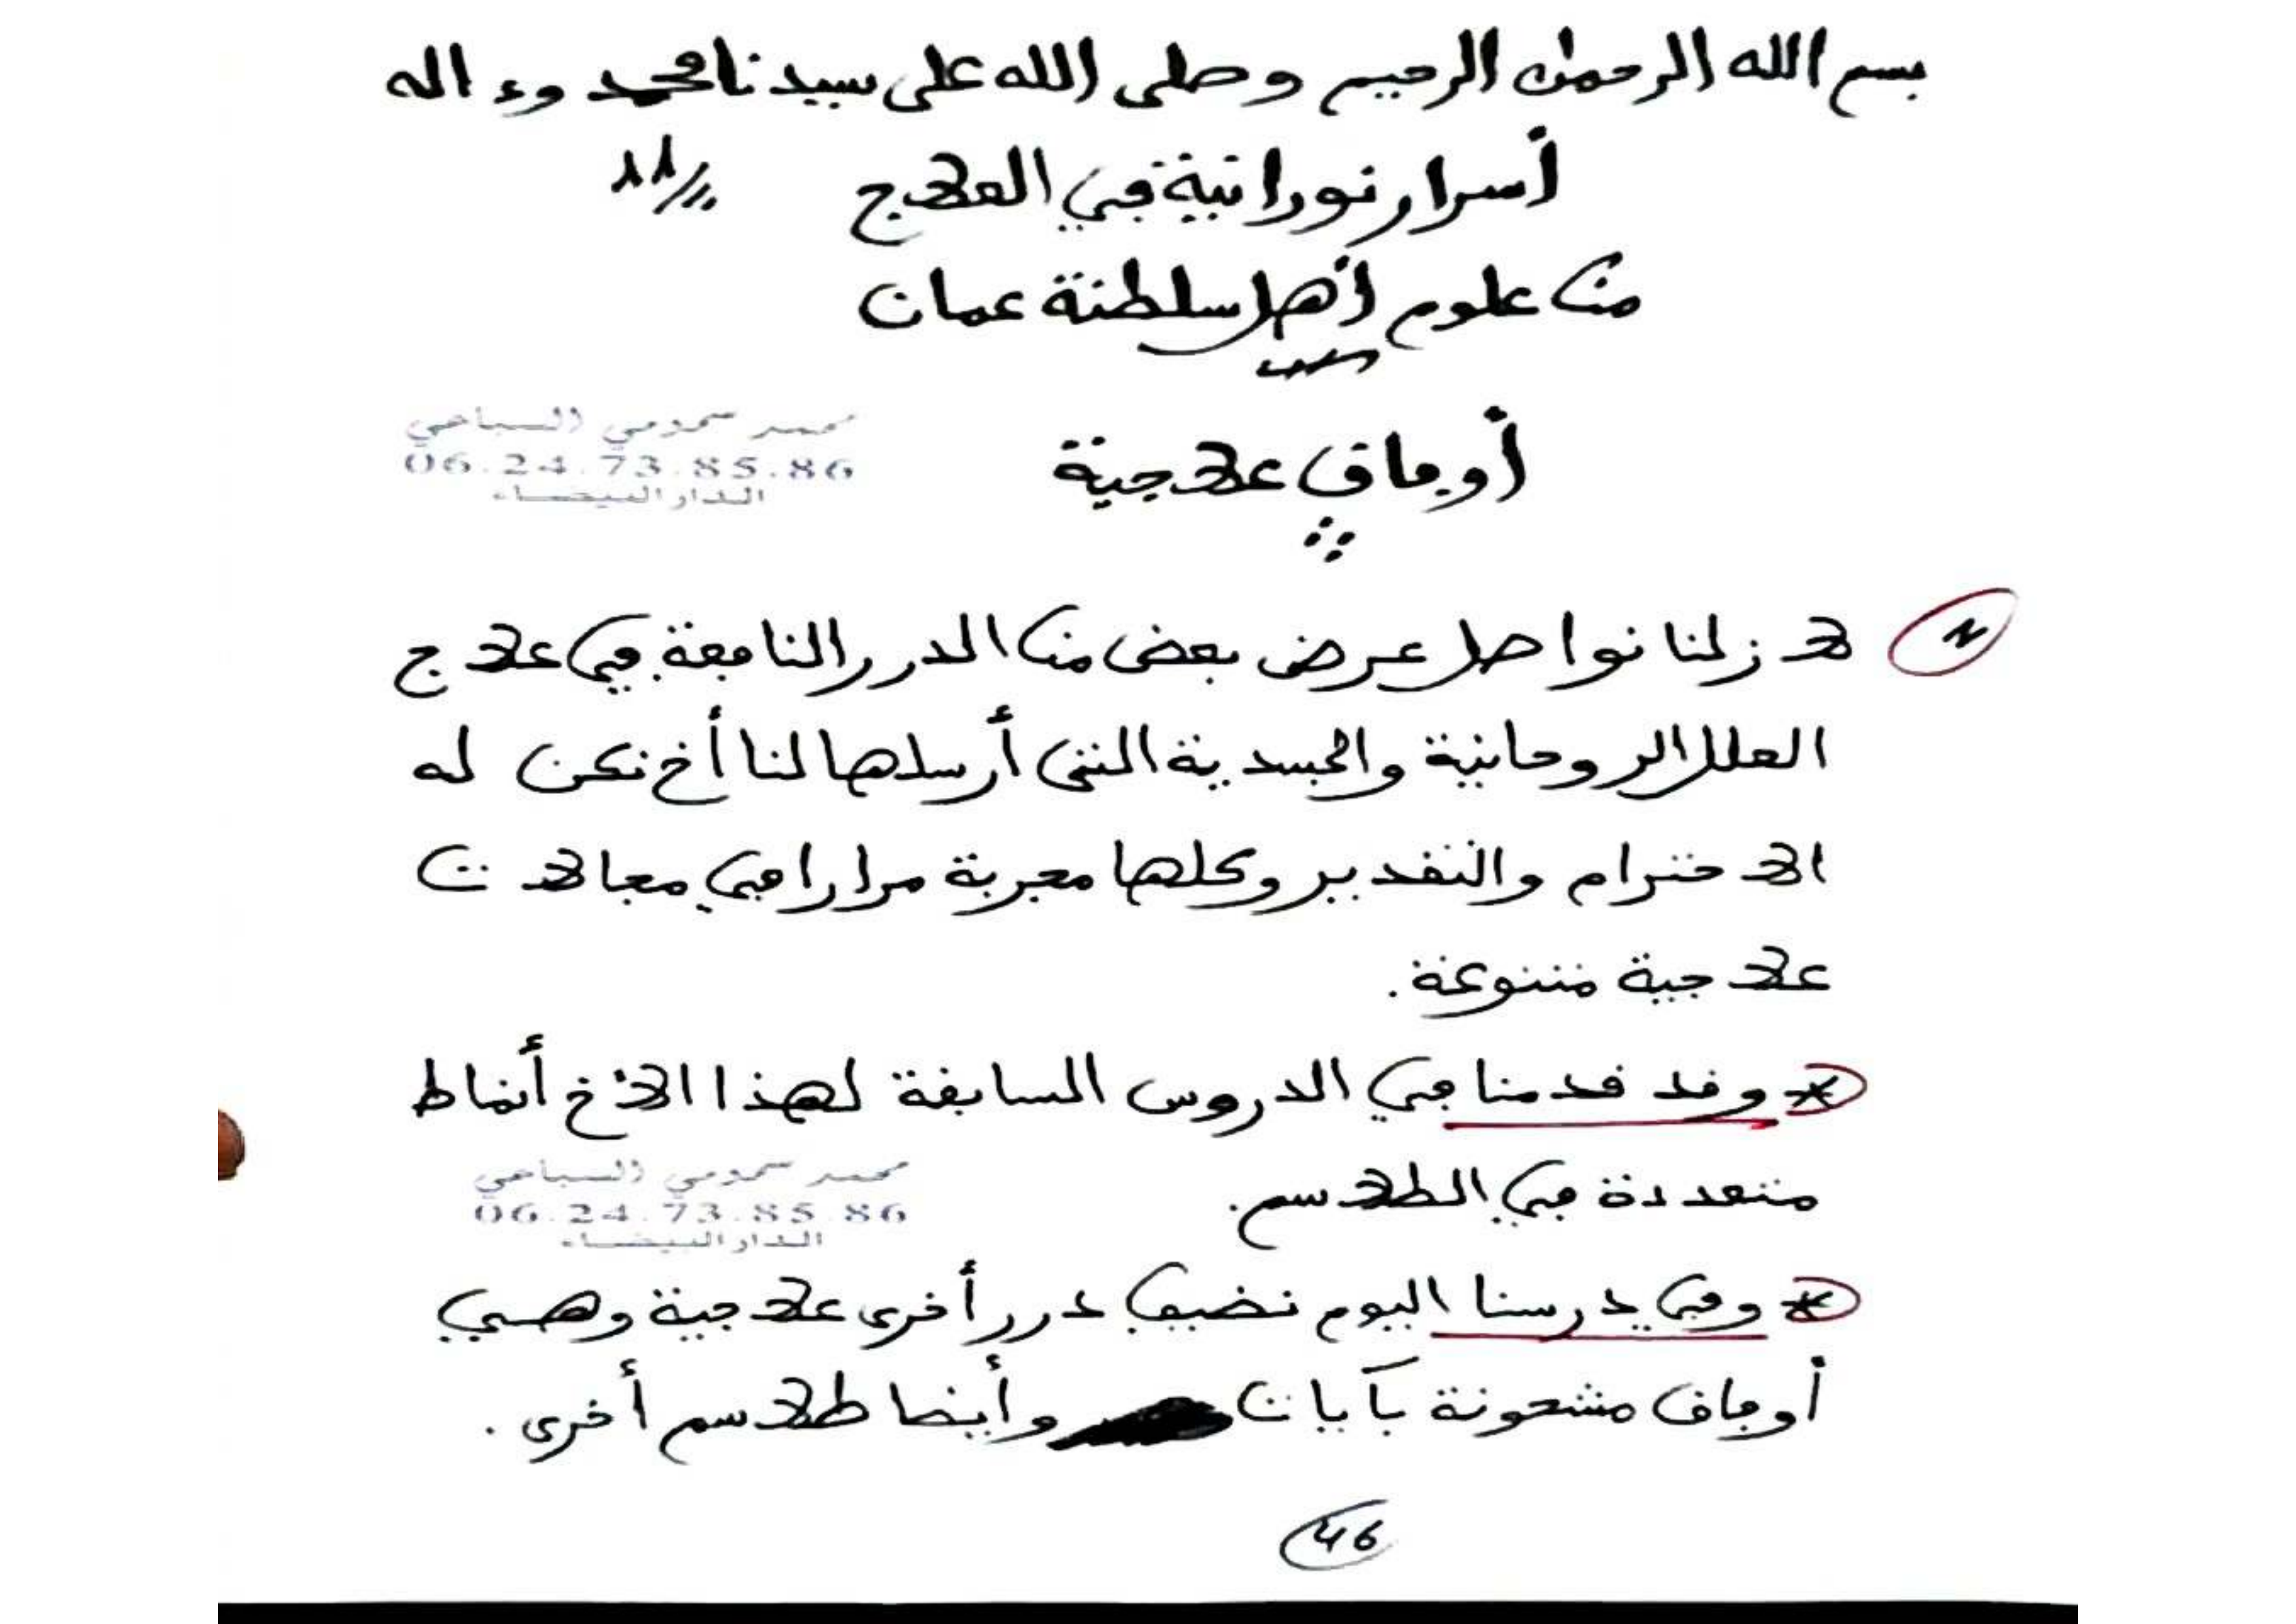 بسم الله الرحمان الرحيم وصلى الله على سيدنا محمد وءاله
أسرار نورانية في العلاج
من علوم أهل سلطنة عمان
محمد حمدومي السباعي
06.24.73.85.86
الدار البيضاء
أوفاق علاجية
لا زلنا نواصل عرض بعض من الدرر النافعة في علاج
العلل الروحانية والجسدية التي أرسلها لنا أخ نكن له
الاحترام والتقدير وكلها مجربة مرارا في مجالات
علاجية متنوعة.
وقد قدمنا في الدروس السابقة لهذا الأخ أنماط
متعددة في الطلاسم.
محمد حمدومي السباعي
06.24.73.85.86
الدار البيضاء
وفي درسنا اليوم نضيف درر أخرى علاجية وهي
أوفاق مشحونة بآيات وأيضا طلاسم أخرى.
46